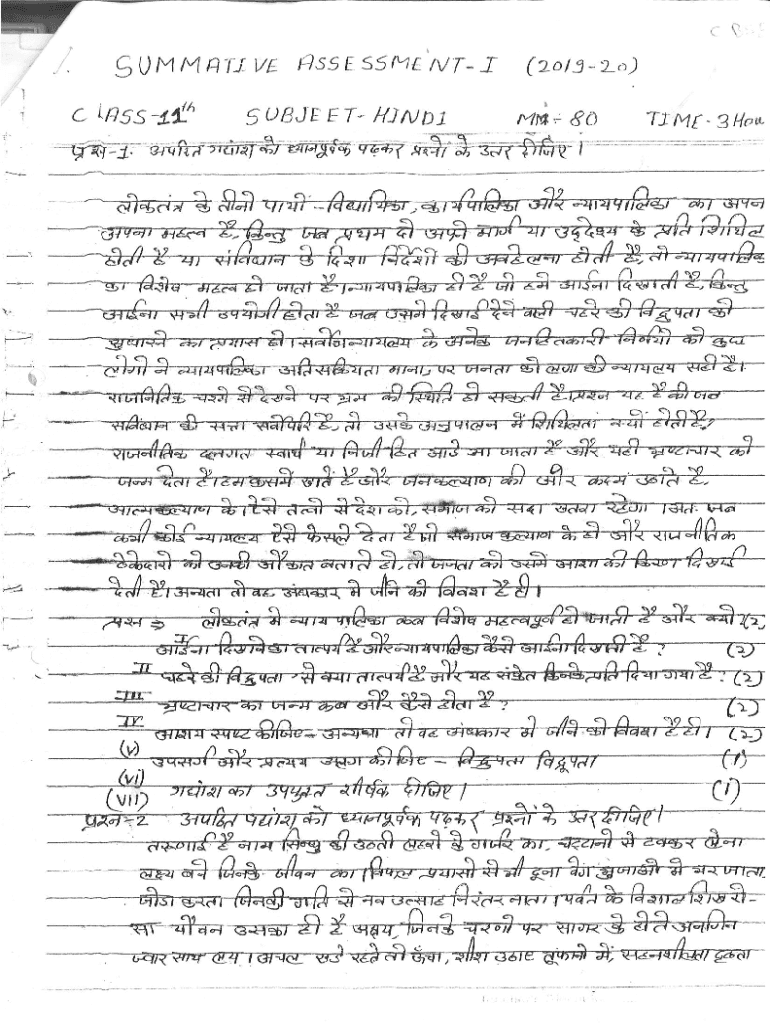 1. SUMMATIVE ASSESSMENT-I (2019-20)
CLASS-11th SUBJEET-HINDI MM÷80 TIME-3Hou
प्रश्न-1. अपठित गद्यांश को ध्यानपूर्वक पढ़कर प्रश्नों के उत्तर दीजिए।
लोकतंत्र के तीनो पायों -विधायिका, कार्यपालिका और न्यायपालिका का अपन
अपना महत्व है, किन्तु जब प्रथम दो अपने मार्ग या उद्देश्य के प्रति शिथिल
होती है या संविधान के दिशा निर्देशों की अवहेलना होती है, तो न्यायपालिक
का विशेष महत्व हो जाता है। न्यायपालिका ही है जो हमे आईना दिखाती है, किन्तु
आईना तभी उपयोगी होता है जब उसमे दिखाई देने वाली चहरे की विद्रुपता को
सुधारने का प्रयास हो। सर्वोच्च न्यायलय के अनेक जनहितकारी निर्णयो को कुछ
लोगो ने न्यायपालिका अतिसक्रियता माना, पर जनता को लगा की न्यायलय सही है।
राजनितिक चश्मे से देखने पर भ्रम की स्थिति हो सकती है। प्रश्न यह है की जब
संविधान की सत्ता सर्वोपरि है, तो उसके अनुपालन में शिथिलता क्यों होती है?
राजनीतिक दलगत स्वार्थ या निजी हित आडे आ जाता है और यही भ्रष्टाचार को
जन्म देता है। हम कसमें खाते है और जनकल्याण की ओर कदम उठाते है,
आत्मकल्याण के। ऐसे तत्वो से देश को, समाज को सदा खतरा रहेगा। अत: जब
कभी कोई न्यायलय ऐसे फेसले देता है जो समाज कल्याण के हो और राजनीतिक
ठेकेदारो को उनकी औकात बताते हो, तो जनता को उसमे आशा की किरण दिखाई
देती है। अन्यता तो वह अंधकार मे जीने को विवश है ही।
प्रश्न लोकतंत्र मे न्याय पालिका कब विशेष महत्वपूर्ण हो जाती है और क्यो? (2)
I आईना दिखाने का तात्पर्य है और न्यायपालिका कैसे आईना दिखाती है? (2)
II चहरे की विद्रुपता से क्या तात्पर्य है और यह संकेत किनके प्रति दिया गया है? (2)
III भ्रष्टाचार का जन्म कब और कैसे होता है? (2)
IV आशय स्पष्ट कीजिए- अन्यथा तो वह अंधकार मे जीने को विवश है ही। (2)
(v) उपसर्ग और प्रत्यय अलग कीजिए - विद्रुपता विद्रूपता (1)
(vi)
(vii) गद्यांश का उपयुक्त शीर्षक दीजिए। (1)
प्रश्न-2 अपठित पद्यांश को ध्यानपूर्वक पढ़कर प्रश्नों के उत्तर दीजिए।
तरूणाई है नाम सिन्धु की उठती लहरो के गर्जन का, चट्टानो से टक्कर लेना
लक्ष्य बने जिनके जीवन का। विफल प्रयासो से भी दूना वेग भुजाओ मे भर जाता,
जोडा करता जिनकी गति से नव उत्साह निरंतर नाता। पर्वत के विशाल शिखरो-
सा यौवन उसका ही है अक्षय, जिनके चरणो पर सागर के होते अनगिन
ज्वार साथ लय। अचल खडे रहते जो ऊँचा, शीश उठाए तूफानो में, सहनशीलता दृढता